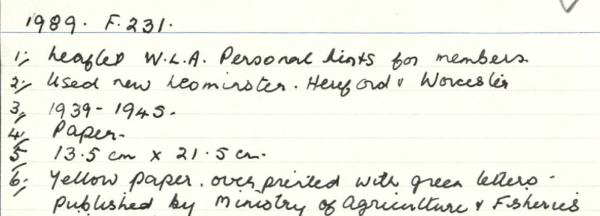 1989. F.231.
1; Leaflet W.L.A. Personal hints for members.
2; Used near Leominster. Hereford & Worcester
3; 1939-1945.
4; Paper.
5 13.5 cm x 21.5 cm.
6; Yellow paper. over printed with green letters.
Published by Ministry of Agriculture & Fisheries